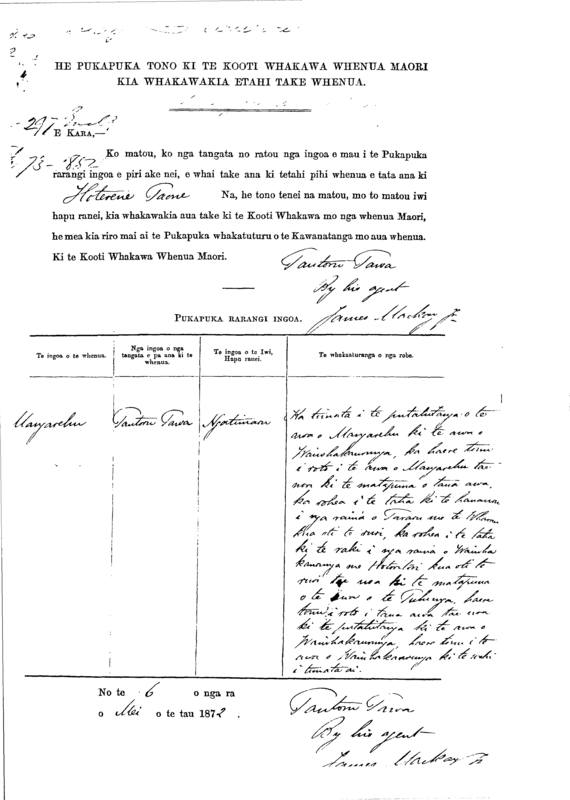 HE PUKAPUKA TONO KI TE KOOTI WHAKAWA WHENUA MAORI
KIA WHAKAWAKIA ETAHI TAKE WHENUA.
297
E KARA,—
73-852
Ko matou, ko nga tangata no ratou nga ingoa e mau i te Pukapuka
rarangi ingoa e piri ake nei, e whai take ana ki tetahi pihi whenua e tata ana ki
Hotereni Taone Na, he tono tenei na matou, mo to matou iwi
hapu ranei, kia whakawakia aua take ki te Kooti Whakawa mo nga whenua Maori,
he mea kia riro mai ai te Pukapuka whakatuturu o te Kawanatanga mo aua whenua.
Ki te Kooti Whakawa Whenua Maori.
Tautoru Tawa
By his agent
James Mackay Jr
PUKAPUKA RARANGI INGOA.
Te ingoa o te whenua.
Nga ingoa o nga
tangata e pa ana ki te
whenua.
Te ingoa o te Iwi,
Hapu ranei.
Te whakaaturanga o nga rohe.
Mangarehu
Tautoru Tawa
Ngatimaru
Ka timata i te putatutanga o te
awa o Mangarehu ki te awa o
Waiwhakaurunga, ka haere tonu
i roto i te awa o Mangarehu tae
noa ki te matapuna o taua awa,
ka rohea i te taha ki te hauauru
i nga raina o Tararu me te
kua oti te ruri, ka rohea i te taha
ki te raki i nga raina o Waiwha
kaurunga me kua oti te
ruri tae noa ki te matapuna
o te awa o te haere
tonu i roto i taua awa tae noa
ki te putatutanga ki te awa o
Waiwhakaurunga, haere tonu i te
awa o Waiwhakaurunga ki te wahi
i timata ai.
No te 6 o nga ra
o Mei o te tau 1872.
Tautoru Tawa
By his agent
James Mackay Jr